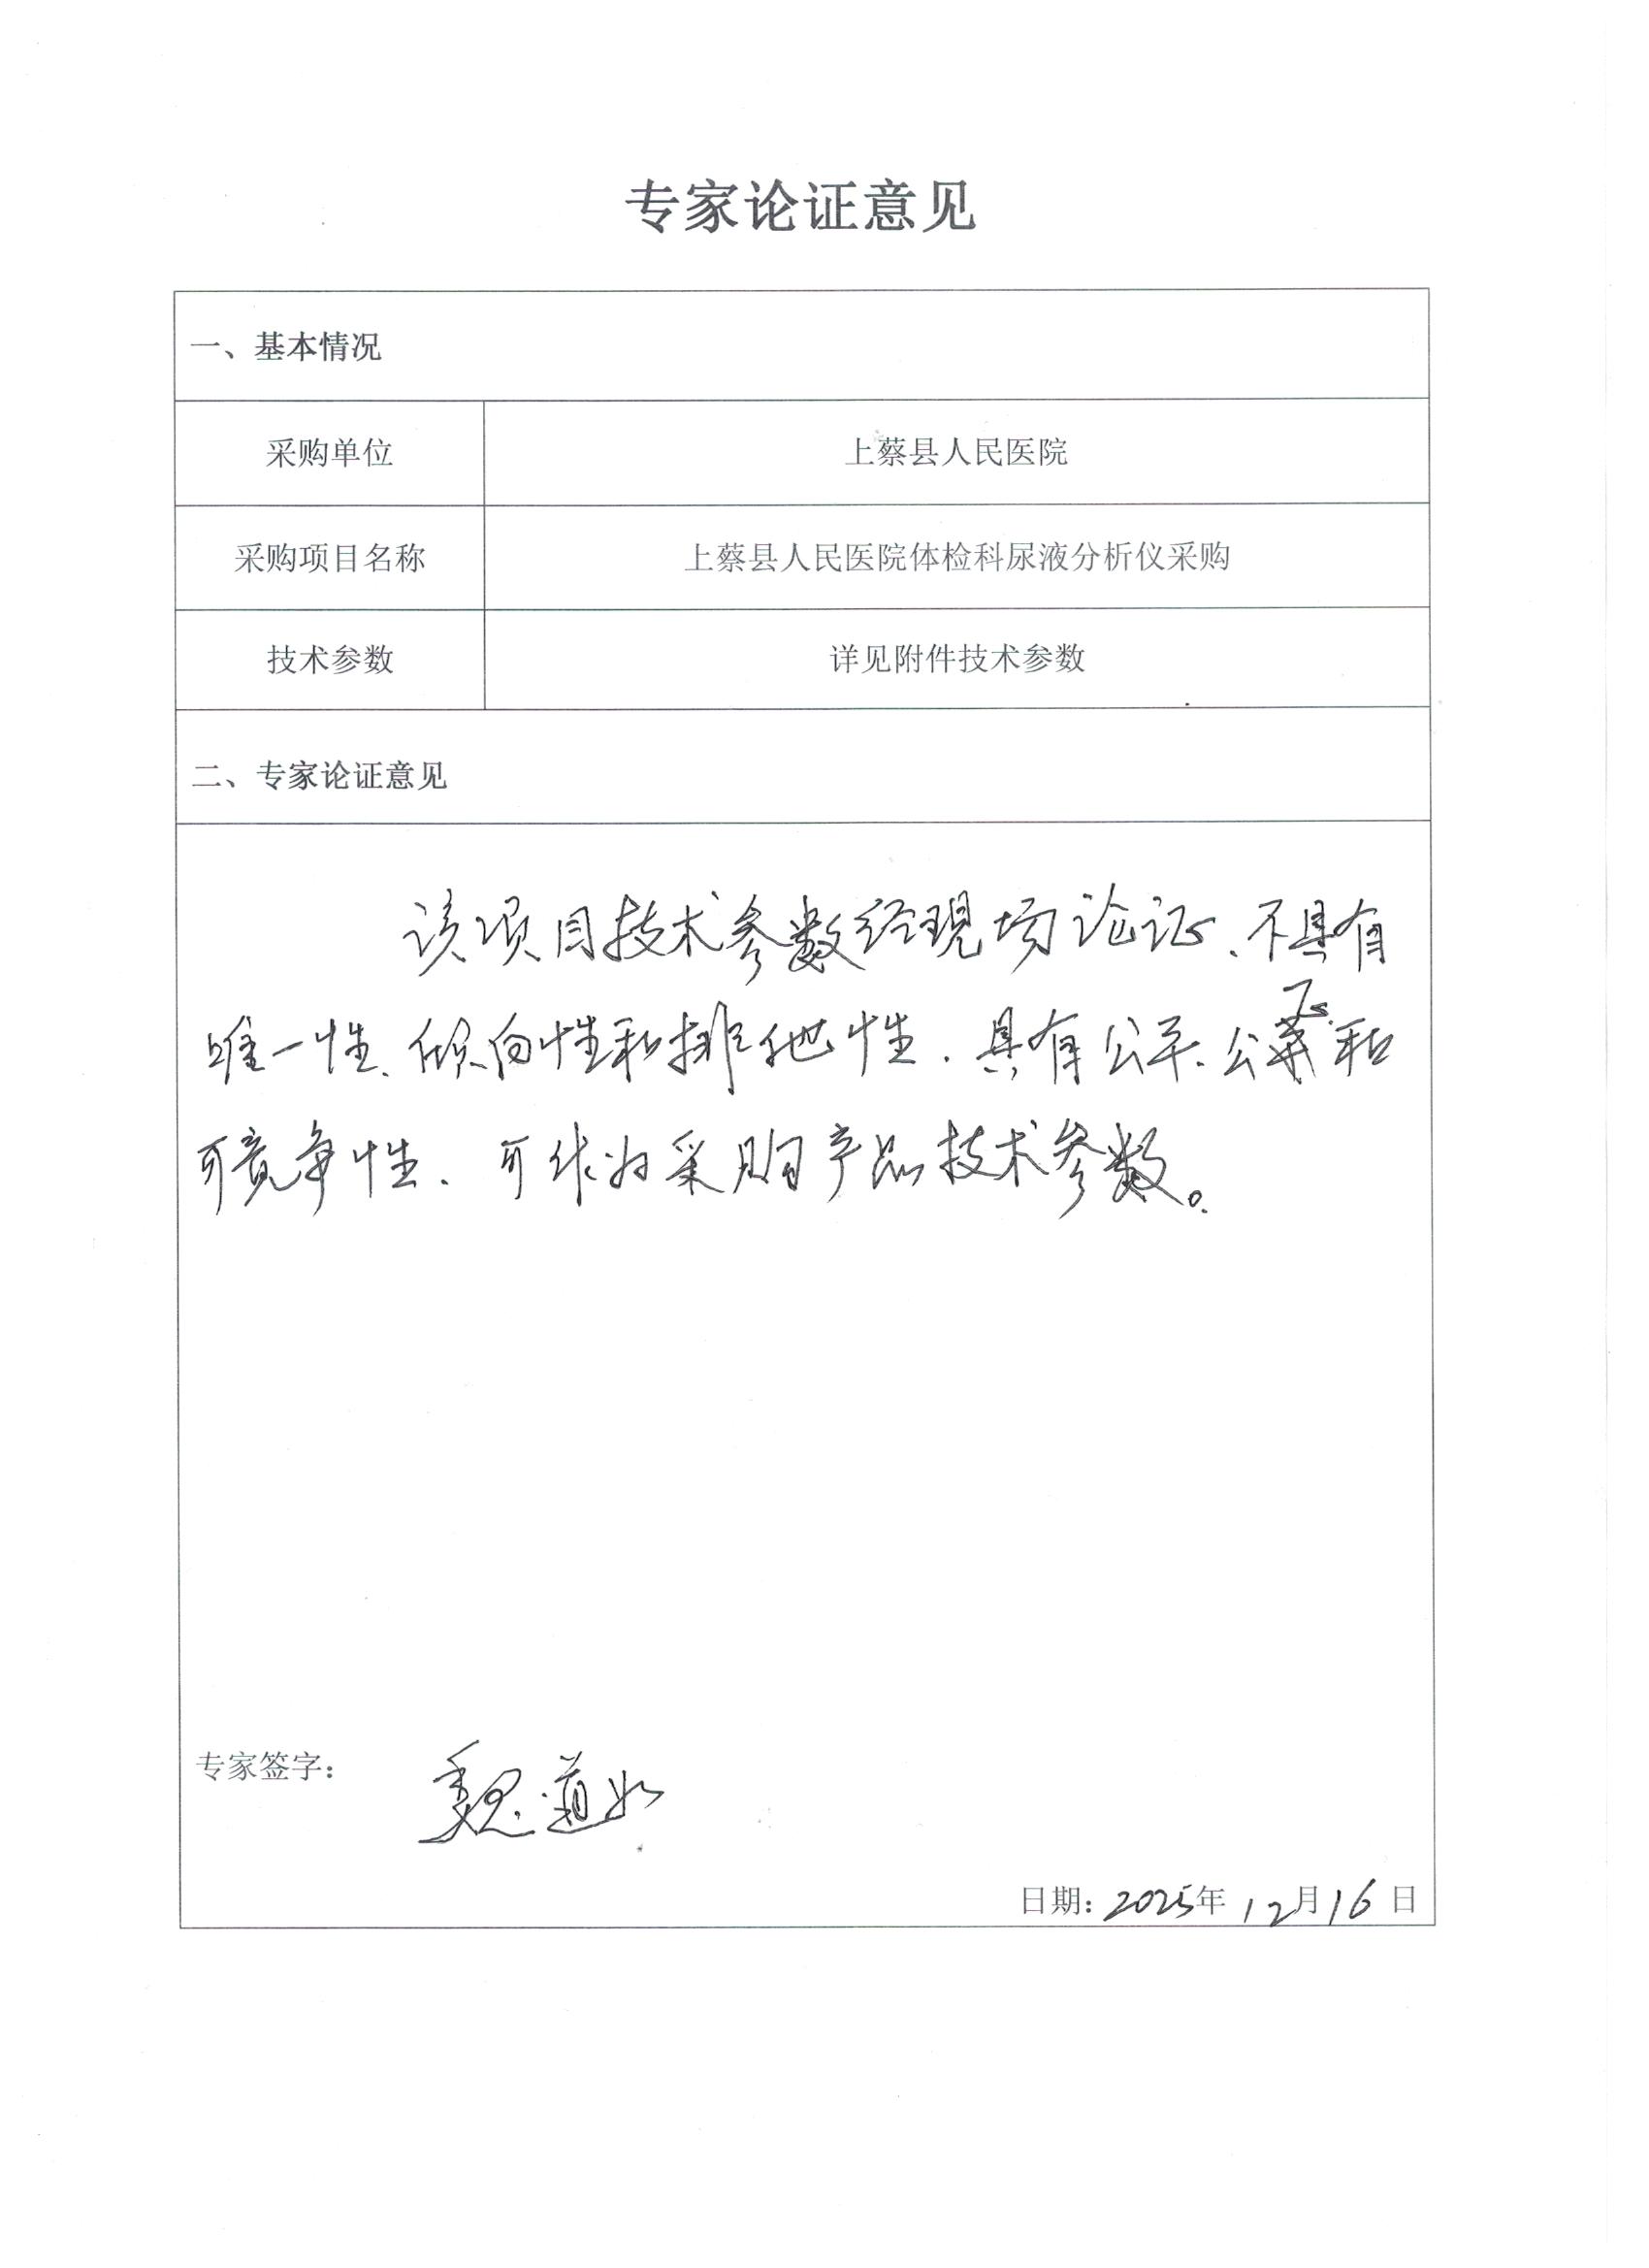 专家论证意见
一、基本情况
采购单位 上蔡县人民医院
采购项目名称 上蔡县人民医院体检科尿液分析仪采购
技术参数 详见附件技术参数
二、专家论证意见
该项目技术参数经现场论证、不具有
唯一性、倾向性和排他性.具有公平.公正和
可竞争性、可作为采购产品技术参数。
专家签字: 魏道
日期:2025年12月16日